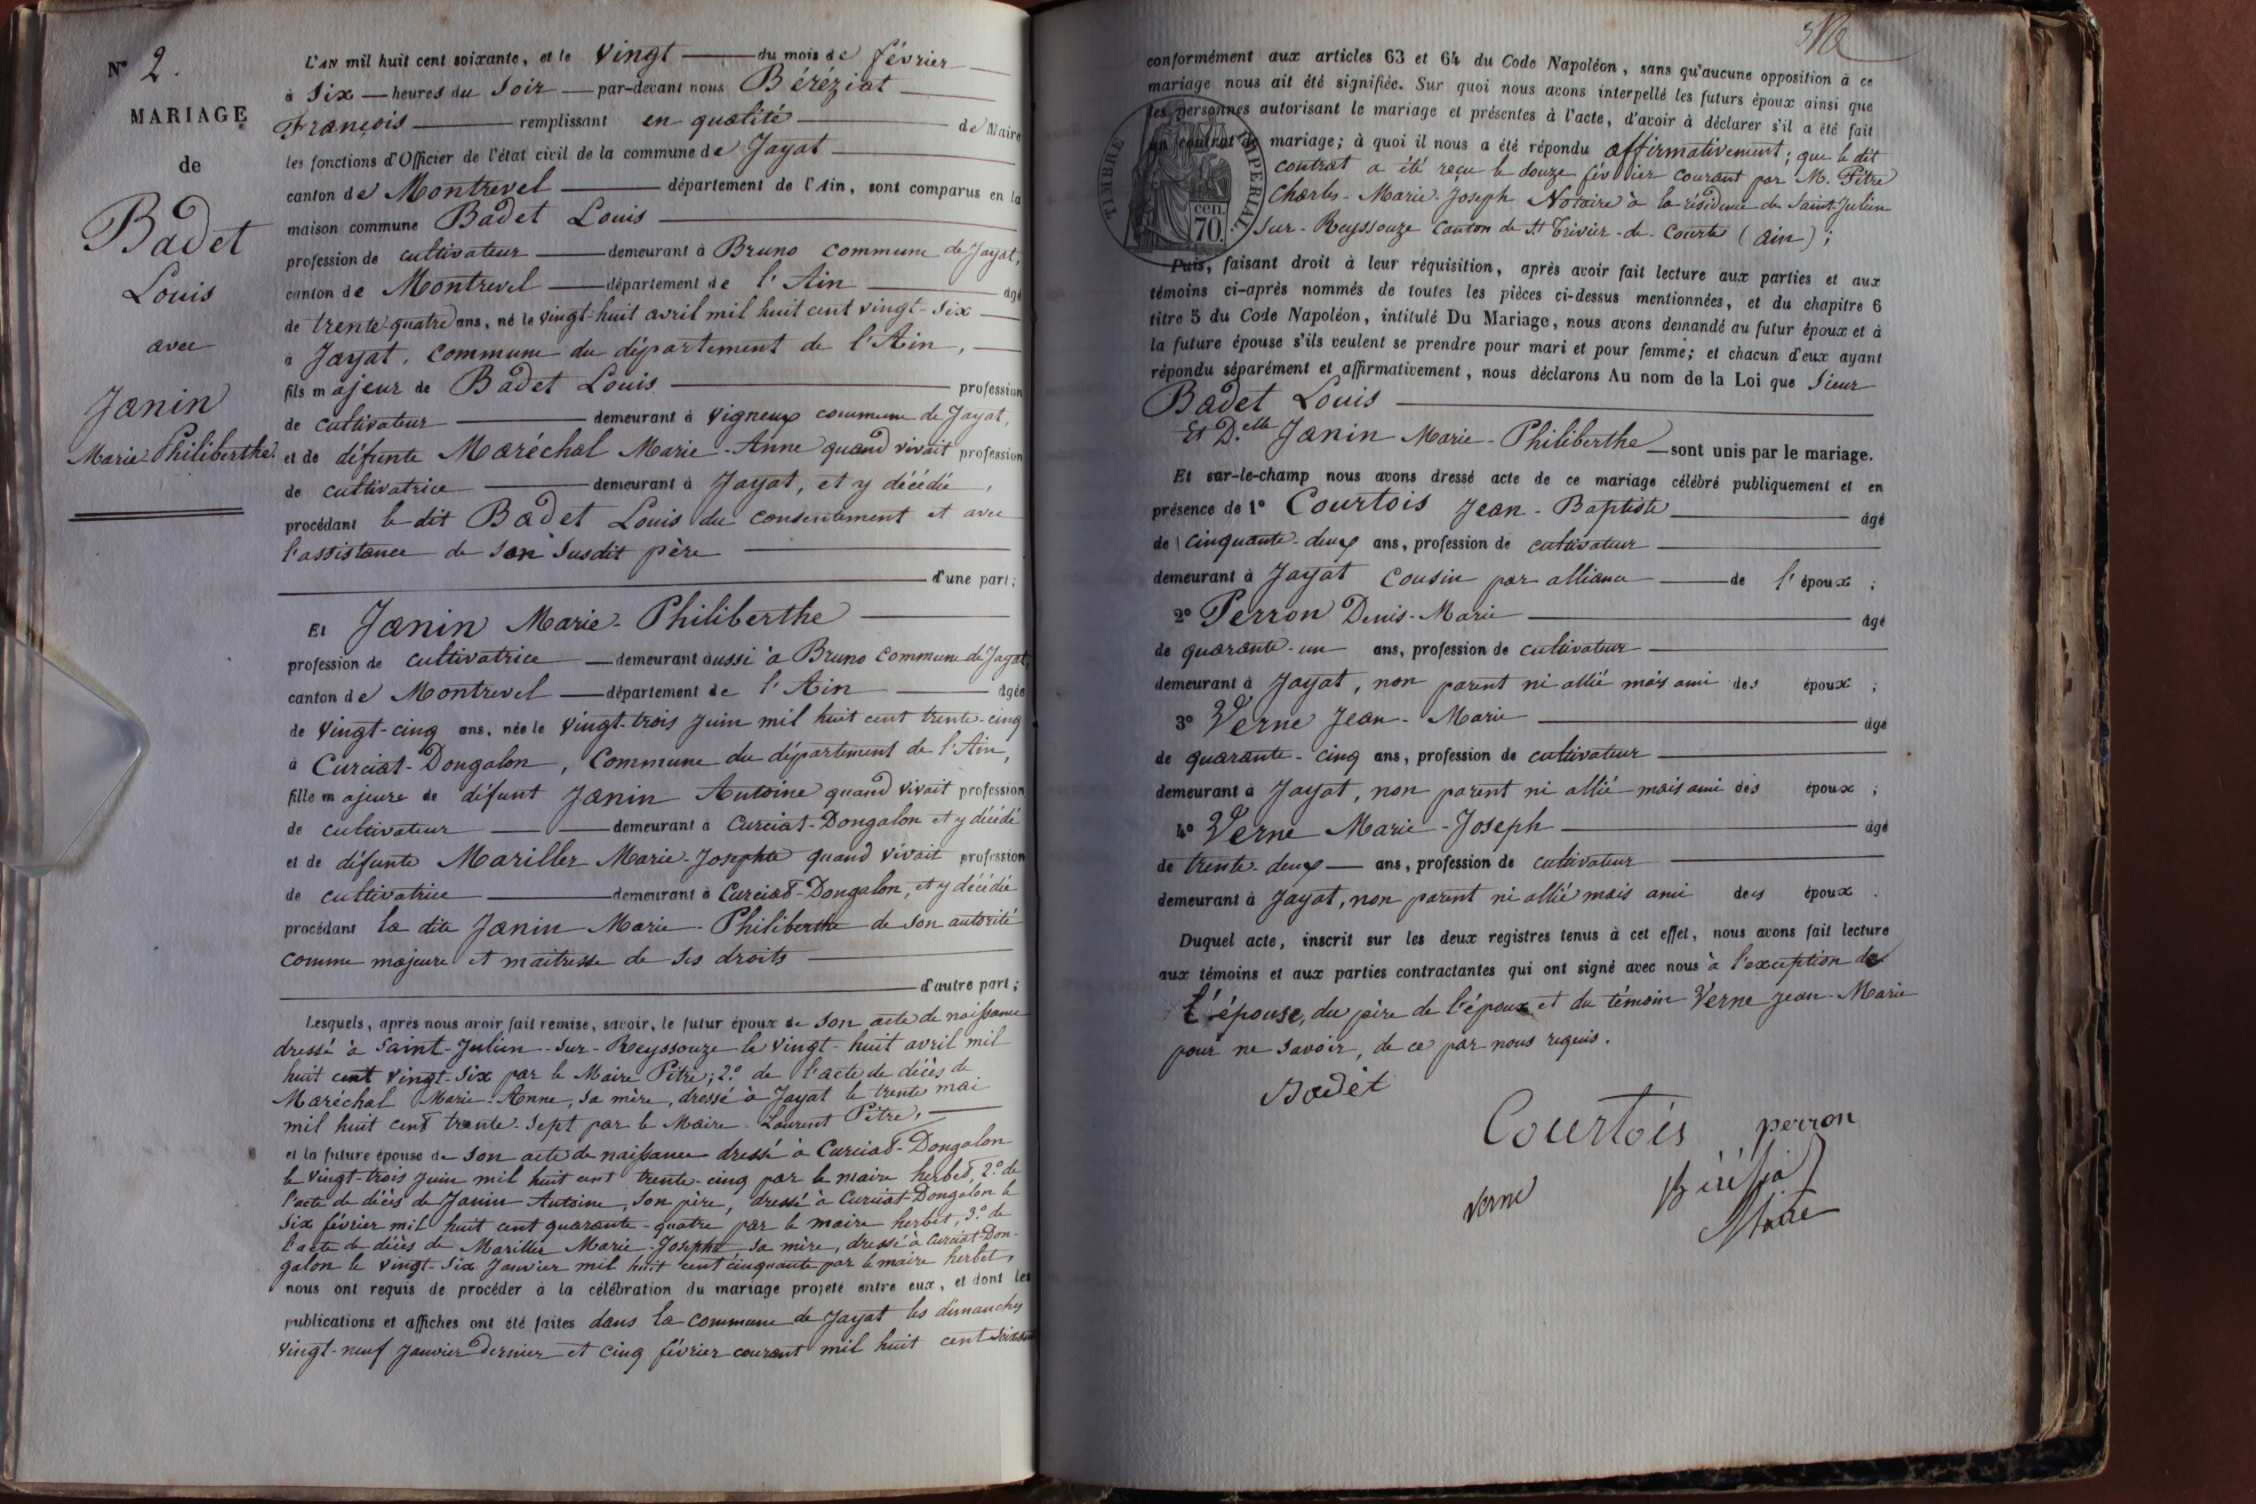 N° 2.
MARIAGE
de
Badet
Louis
avec
Janin
Marie-Philiberthe.
L'AN mil huit cent soixante, et le vingt du mois de février
à six heures du soir par-devant nous Béréziat
François remplissant en qualité de Maire
les fonctions d'Officier de l'état civil de la commune de Jayat
canton de Montrevel département de l'Ain, sont comparus en la
maison commune Badet Louis
profession de cultivateur demeurant à Bruno commune de Jayat,
canton de Montrevel département de l'Ain âgé
de trente-quatre ans, né le vingt-huit avril mil huit cent vingt-six
à Jayat, commune du département de l'Ain,
fils majeur de Badet Louis profession
de cultivateur demeurant à Vigneux commune de Jayat,
et de défunte Maréchal Marie-Anne quand vivait profession
de cultivatrice demeurant à Jayat, et y décédée,
procédant le dit Badet Louis du consentement et avec
l'assistance de son susdit père
d'une part;
Et Janin Marie-Philiberthe
profession de cultivatrice demeurant aussi à Bruno commune de Jayat,
canton de Montrevel département de l'Ain âgée
de vingt-cinq ans, née le vingt-trois juin mil huit cent trente-cinq
à Curciat-Dongalon, commune du département de l'Ain,
fille majeure de défunt Janin Antoine quand vivait profession
de cultivateur demeurant à Curciat-Dongalon et y décédé
et de défunte Mariller Marie-Josephte quand vivait profession
de cultivatrice demeurant à Curciat-Dongalon, et y décédée
procédant la dite Janin Marie-Philiberthe de son autorité
comme majeure et maitresse de ses droits
d'autre part;
Lesquels, après nous avoir fait remise, savoir, le futur époux de son acte de naissance
dressé à Saint-Julien-sur-Reyssouze le vingt-huit avril mil
huit cent vingt-six par le Maire Pitre; 2.° de l'acte de décès de
Maréchal Marie-Anne, sa mère, dressé à Jayat le trente mai
mil huit cent trente-sept par le Maire Laurent Pitre,
et la future épouse de son acte de naissance dressé à Curciat-Dongalon
le vingt-trois juin mil huit cent trente-cinq par le maire herbet, 2.° de
l'acte de décès de Janin Antoine, son père, dressé à Curciat-Dongalon le
six février mil huit cent quarante-quatre par le maire herbet, 3.° de
l'acte de décès de Mariller Marie-Josephte, sa mère, dressé à Curciat-Don-
galon le vingt-six janvier mil huit cent cinquante par le maire herbet,
nous ont requis de procéder à la célébration du mariage projeté entre eux, et dont les
publications et affiches ont été faites dans la commune de Jayat les dimanches
vingt-neuf janvier dernier et cinq février courant mil huit cent soixante
conformément aux articles 63 et 64 du Code Napoléon, sans qu'aucune opposition à ce
mariage nous ait été signifiée. Sur quoi nous avons interpellé les futurs époux ainsi que
les personnes autorisant le mariage et présentes à l'acte, d'avoir à déclarer s'il a été fait
un contrat de mariage; à quoi il nous a été répondu affirmativement; que le dit
contrat a été reçu le douze février courant par M. Pitre
Charles-Marie-Joseph Notaire à la résidence de Saint-Julien
sur-Reyssouze canton de St Trivier-de-Courtes (Ain);
TIMBRE IMPERIAL.
70 cen.
Puis, faisant droit à leur réquisition, après avoir fait lecture aux parties et aux
témoins ci-après nommés de toutes les pièces ci-dessus mentionnées, et du chapitre 6
titre 5 du Code Napoléon, intitulé Du Mariage, nous avons demandé au futur époux et à
la future épouse s'ils veulent se prendre pour mari et pour femme; et chacun d'eux ayant
répondu séparément et affirmativement, nous déclarons Au nom de la Loi que sieur
Badet Louis
Et D.elle Janin Marie-Philiberthe sont unis par le mariage.
Et sur-le-champ nous avons dressé acte de ce mariage célébré publiquement et en
présence de 1° Courtois Jean-Baptiste âgé
de cinquante-deux ans, profession de cultivateur
demeurant à Jayat cousin par alliance de l'époux;
2° Perron Denis-Marie âgé
de quarante-un ans, profession de cultivateur
demeurant à Jayat, non parent ni allié mais ami des époux;
3° Verne Jean-Marie âgé
de quarante-cinq ans, profession de cultivateur
demeurant à Jayat, non parent ni allié mais ami des époux;
4° Verne Marie-Joseph âgé
de trente-deux ans, profession de cultivateur
demeurant à Jayat, non parent ni allié mais ami des époux.
Duquel acte, inscrit sur les deux registres tenus à cet effet, nous avons fait lecture
aux témoins et aux parties contractantes qui ont signé avec nous à l'exception de
l'épouse, du père de l'époux et du témoin Verne Jean-Marie
pour ne savoir, de ce par nous requis.
Badet
Courtois
perron
verne
Béréziat
Maire